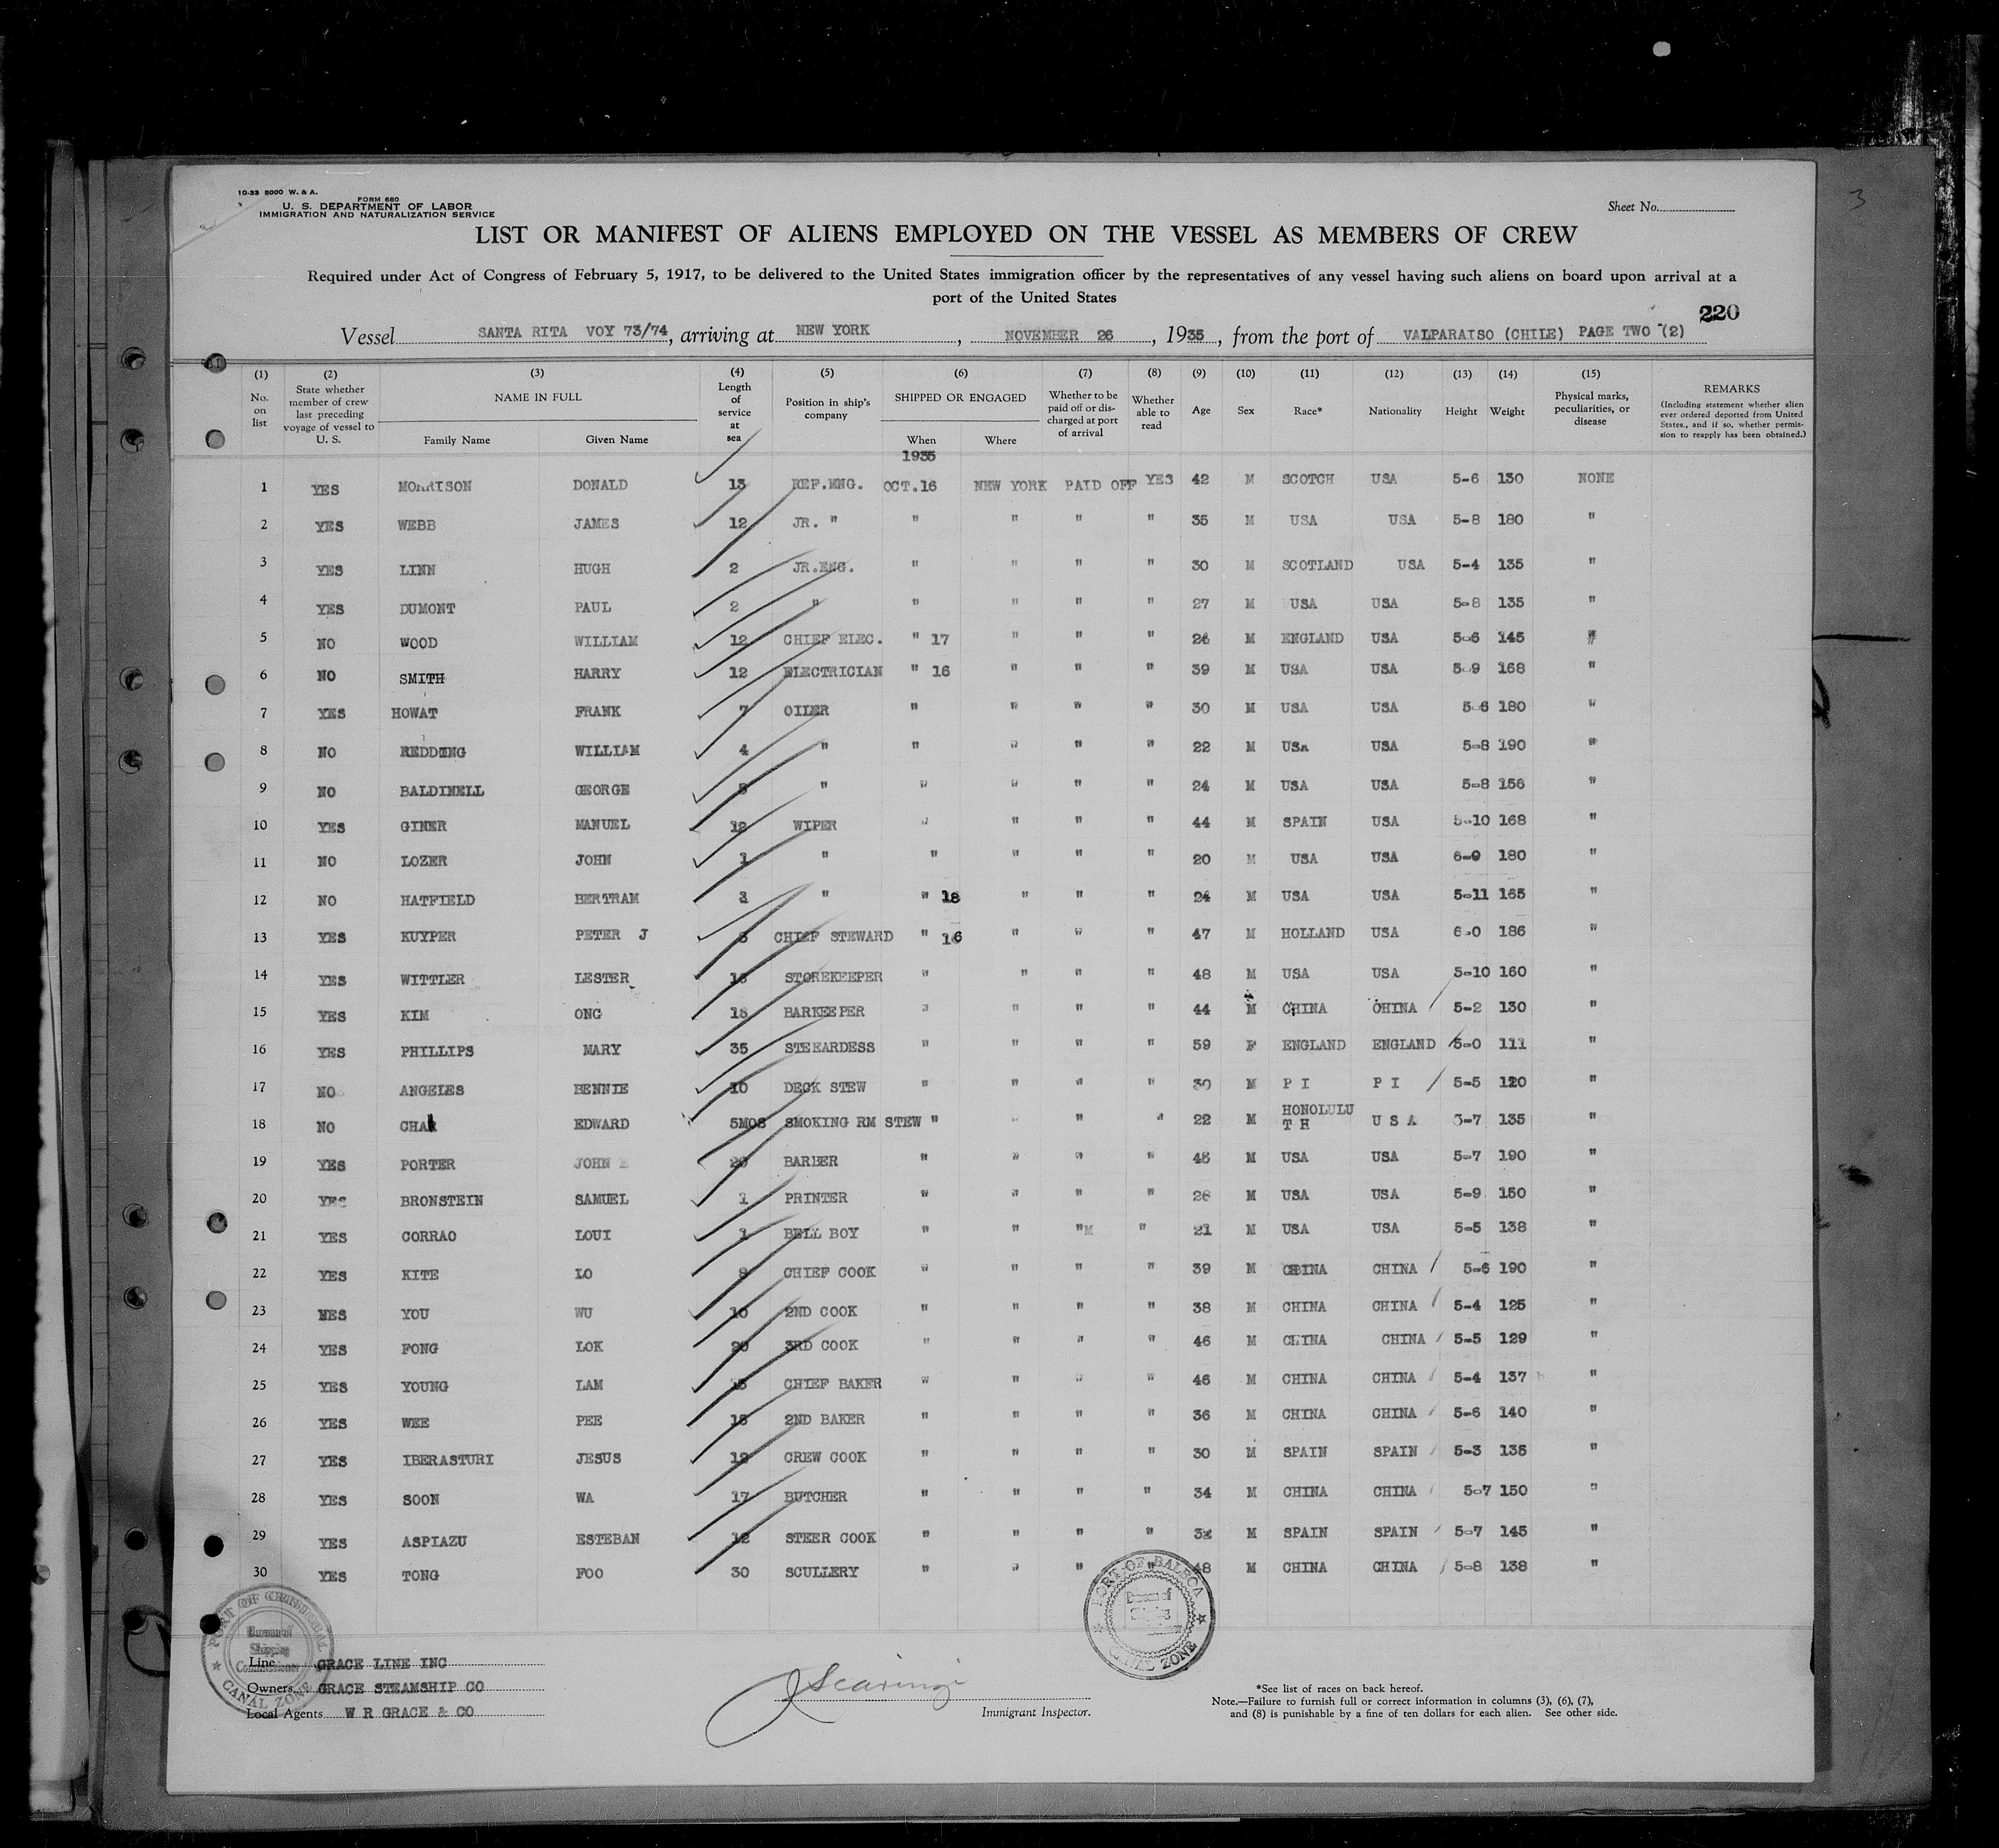 10-33 5000 W. & A.
FORM 680
U. S. DEPARTMENT OF LABOR
IMMIGRATION AND NATURALIZATION SERVICE
Sheet No.
3
LIST OR MANIFEST OF ALIENS EMPLOYED ON THE VESSEL AS MEMBERS OF CREW
Required under Act of Congress of February 5, 1917, to be delivered to the United States immigration officer by the representatives of any vessel having such aliens on board upon arrival at a
port of the United States
220
Vessel SANTA RITA VOY 73/74, arriving at NEW YORK, NOVEMBER 26, 1935, from the port of VALPARAISO (CHILE) PAGE TWO (2)
(1) (2) (3) (4) (5) (6) (7) (8) (9) (10) (11) (12) (13) (14) (15)
No. on list State whether member of crew last preceding voyage of vessel to U. S. NAME IN FULL Family Name Given Name Length of service at sea Position in ship's company SHIPPED OR ENGAGED When Where Whether to be paid off or discharged at port of arrival Whether able to read Age Sex Race* Nationality Height Weight Physical marks, peculiarities, or disease REMARKS (Including statement whether alien ever ordered deported from United States, and if so, whether permission to reapply has been obtained.)
1935
1 YES MORRISON DONALD 13 REF.ENG. OCT.16 NEW YORK PAID OFF YES 42 M SCOTCH USA 5-6 130 NONE
2 YES WEBB JAMES 12 JR. " " " " " 35 M USA USA 5-8 180 "
3 YES LINN HUGH 2 JR.ENG. " " " " 30 M SCOTLAND USA 5-4 135 "
4 YES DUMONT PAUL 2 " " " " " 27 M USA USA 5-8 135 "
5 NO WOOD WILLIAM 12 CHIEF ELEC. " 17 " " " M ENGLAND USA 5-6 145 "
6 NO SMITH HARRY 12 ELECTRICIAN " 16 " " " 39 M USA USA 5-9 168 "
7 YES HOWAT FRANK 7 OILER " " " " 30 M USA USA 5-6 180 "
8 NO REDDING WILLIAM 4 " " " " " 22 M USA USA 5-8 190 "
9 NO BALDINELL GEORGE " " " " " 24 M USA USA 5-8 156 "
10 YES GINER MANUEL 12 WIPER " " " " 44 M SPAIN USA 5-10 168 "
11 NO LOZER JOHN 1 " " " " " 20 M USA USA 6-0 180 "
12 NO HATFIELD BERTRAM " " 18 " " " 24 M USA USA 5-11 165 "
13 YES KUYPER PETER J CHIEF STEWARD " 16 " " " 47 M HOLLAND USA 6-0 186 "
14 YES WITTLER LESTER STOREKEEPER " " " " 48 M USA USA 5-10 160 "
15 YES KIM ONG BARKEEPER " " " " 44 M CHINA CHINA 5-2 130 "
16 YES PHILLIPS MARY 35 STEEARDESS " " " " 59 F ENGLAND ENGLAND 5-0 111 "
17 NO ANGELES BENNIE 10 DECK STEW " " " " 30 M P I P I 5-5 120 "
18 NO EDWARD 5MOS SMOKING RM STEW " " " " 22 M HONOLULU T H U S A 5-7 135 "
19 YES PORTER JOHN 20 BARBER " " " " 45 M USA USA 5-7 190 "
20 YES BRONSTEIN SAMUEL 1 PRINTER " " " " M USA USA 5-9 150 "
21 YES CORRAO LOUI 1 BELL BOY " " " " 21 M USA USA 5-5 138 "
22 YES KITE LO CHIEF COOK " " " " 39 M CHINA CHINA 5-6 190 "
23 YES YOU WU 10 2ND COOK " " " " 38 M CHINA CHINA 5-4 125 "
24 YES FONG LOK 20 3RD COOK " " " " 46 M CHINA CHINA 5-5 129 "
25 YES YOUNG LAM CHIEF BAKER " " " " 46 M CHINA CHINA 5-4 137 "
26 YES WEE PEE 2ND BAKER " " " " 36 M CHINA CHINA 5-6 140 "
27 YES IBERASTURI JESUS CREW COOK " " " " 30 M SPAIN SPAIN 5-3 135 "
28 YES SOON WA 17 BUTCHER " " " " 34 M CHINA CHINA 5-7 150 "
29 YES ASPIAZU ESTEBAN 12 STEER COOK " " " " M SPAIN SPAIN 5-7 145 "
30 YES TONG FOO 30 SCULLERY " " " " 48 M CHINA CHINA 5-8 138 "
PORT OF CRISTOBAL
Bureau of Shipping Commissioner
CANAL ZONE
PORT OF BALBOA
Bureau of Shipping
CANAL ZONE
Line GRACE LINE INC
Owners GRACE STEAMSHIP CO
Local Agents W R GRACE & CO
Immigrant Inspector.
*See list of races on back hereof.
Note.—Failure to furnish full or correct information in columns (3), (6), (7),
and (8) is punishable by a fine of ten dollars for each alien. See other side.